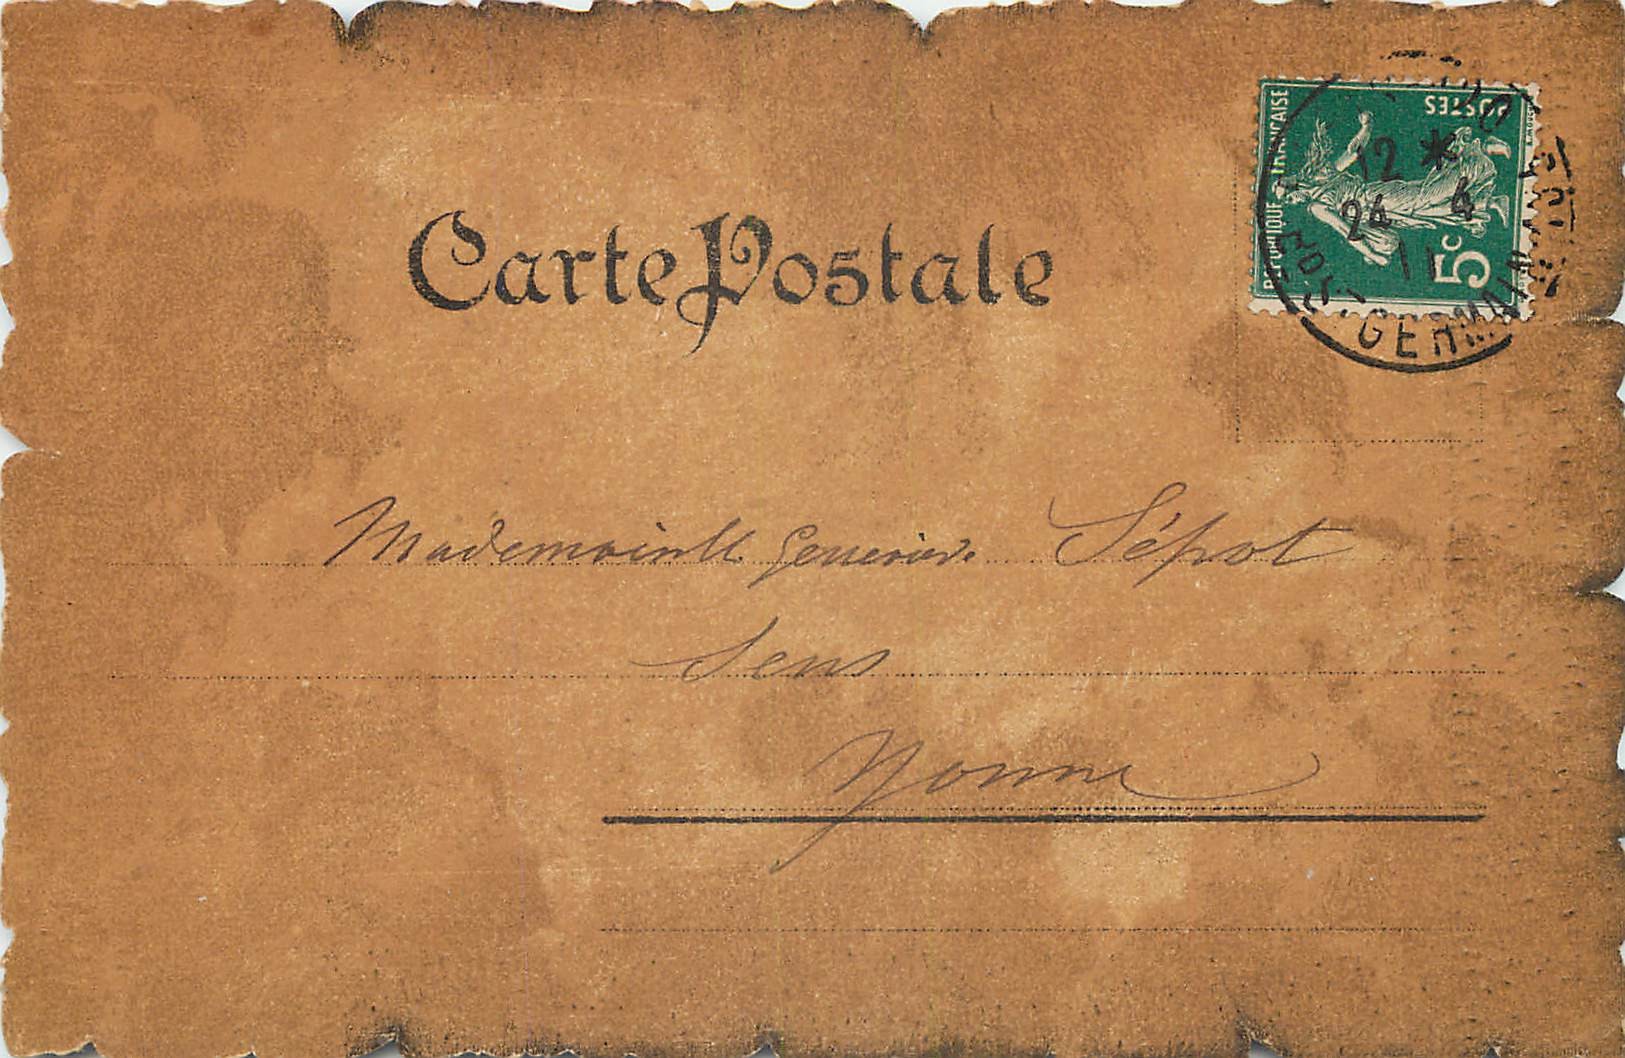 Carte Postale
REPUBLIQUE FRANÇAISE
POSTES
5c
12 *
24 4
11
GERMAIN
Mademoiselle Geneviève Sépot
Sens
Yonne